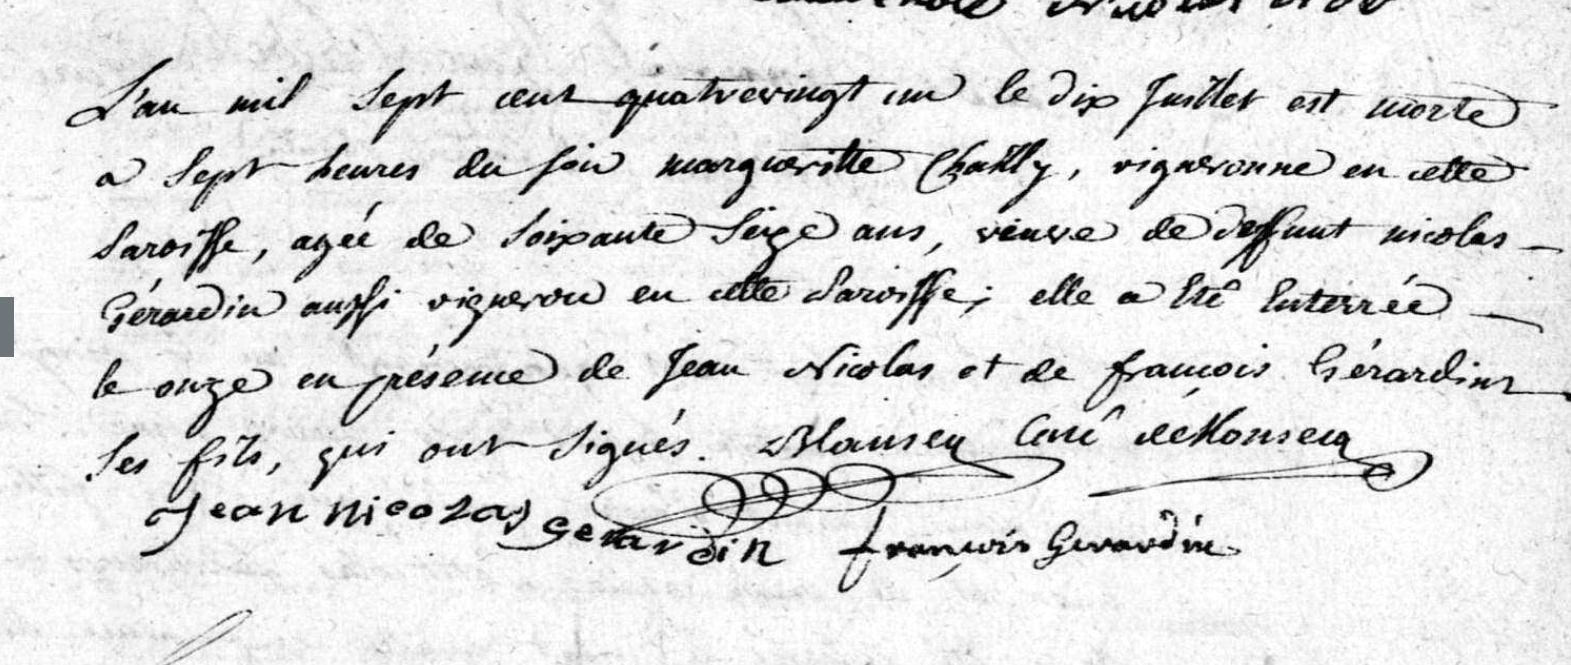 L'an mil Sept cent quatrevingt un le dix Juillet est morte
a Sept heures du soir margueritte Chailly, vigneronne en cette
Paroisse, agée de Soixante Seize ans, veuve de deffunt nicolas
Gérardin aussi vigneron en cette Paroisse; elle a Eté Enterrée
le onze en présence de Jean Nicolas et de françois Gérardins
Ses fils, qui ont Signés. Curé de
Jean nicolas Gerardin françois Gerardin